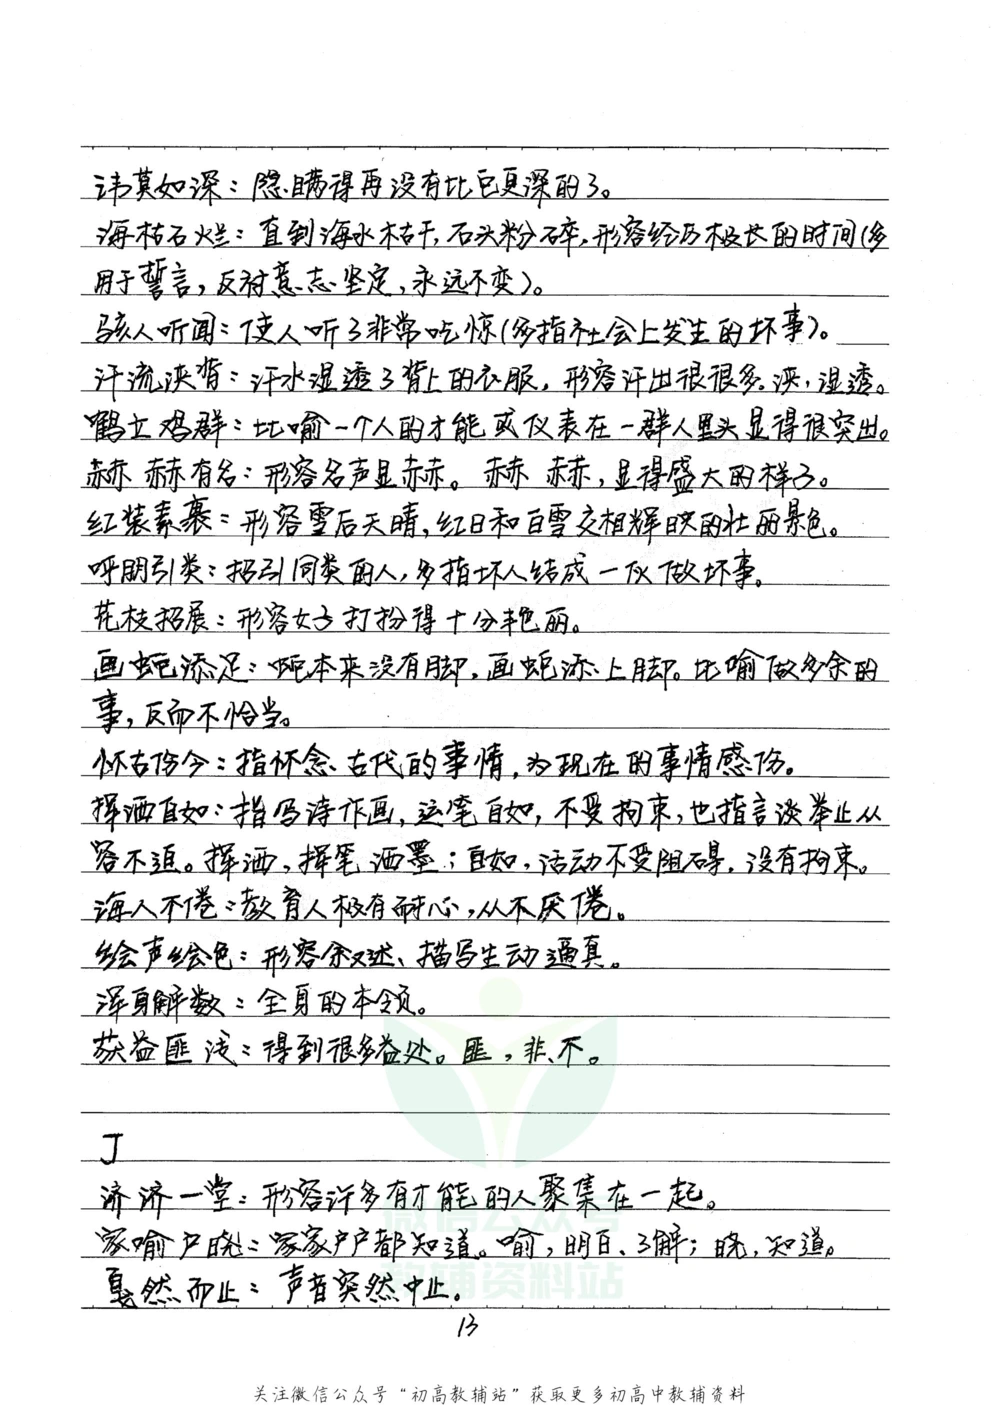 讳莫如深：隐瞒得再没有比它更深的了。
海枯石烂：直到海水枯干，石头粉碎，形容经历极长的时间（多
用于誓言，反衬意志坚定，永远不变）。
骇人听闻：使人听了非常吃惊（多指社会上发生的坏事）。
汗流浃背：汗水湿透了背上的衣服，形容汗出很很多。浃，湿透。
鹤立鸡群：比喻一个人的才能或仪表在一群人里头显得很突出。
赫赫有名：形容名声显赫。赫赫，显得盛大的样子。
红装素裹：形容雪后天晴，红日和白雪交相辉映的壮丽景色。
呼朋引类：招引同类的人，多指坏人结成一伙做坏事。
花枝招展：形容女子打扮得十分艳丽。
画蛇添足：蛇本来没有脚，画蛇添上脚。比喻做多余的
事，反而不恰当。
怀古伤今：指怀念古代的事情，为现在的事情感伤。
挥洒自如：指写诗作画，运笔自如，不受拘束，也指言谈举止从
容不迫。挥洒，挥笔洒墨；自如，活动不受阻碍，没有拘束。
诲人不倦：教育人极有耐心，从不厌倦。
绘声绘色：形容叙述、描写生动逼真。
浑身解数：全身的本领。
获益匪浅：得到很多益处。匪，非、不。
J
济济一堂：形容许多有才能的人聚集在一起。
家喻户晓：家家户户都知道。喻，明白、了解；晓，知道。
戛然而止：声音突然中止。
13
微信公众号
教辅资料站
关注微信公众号“初高教辅站”获取更多初高中教辅资料